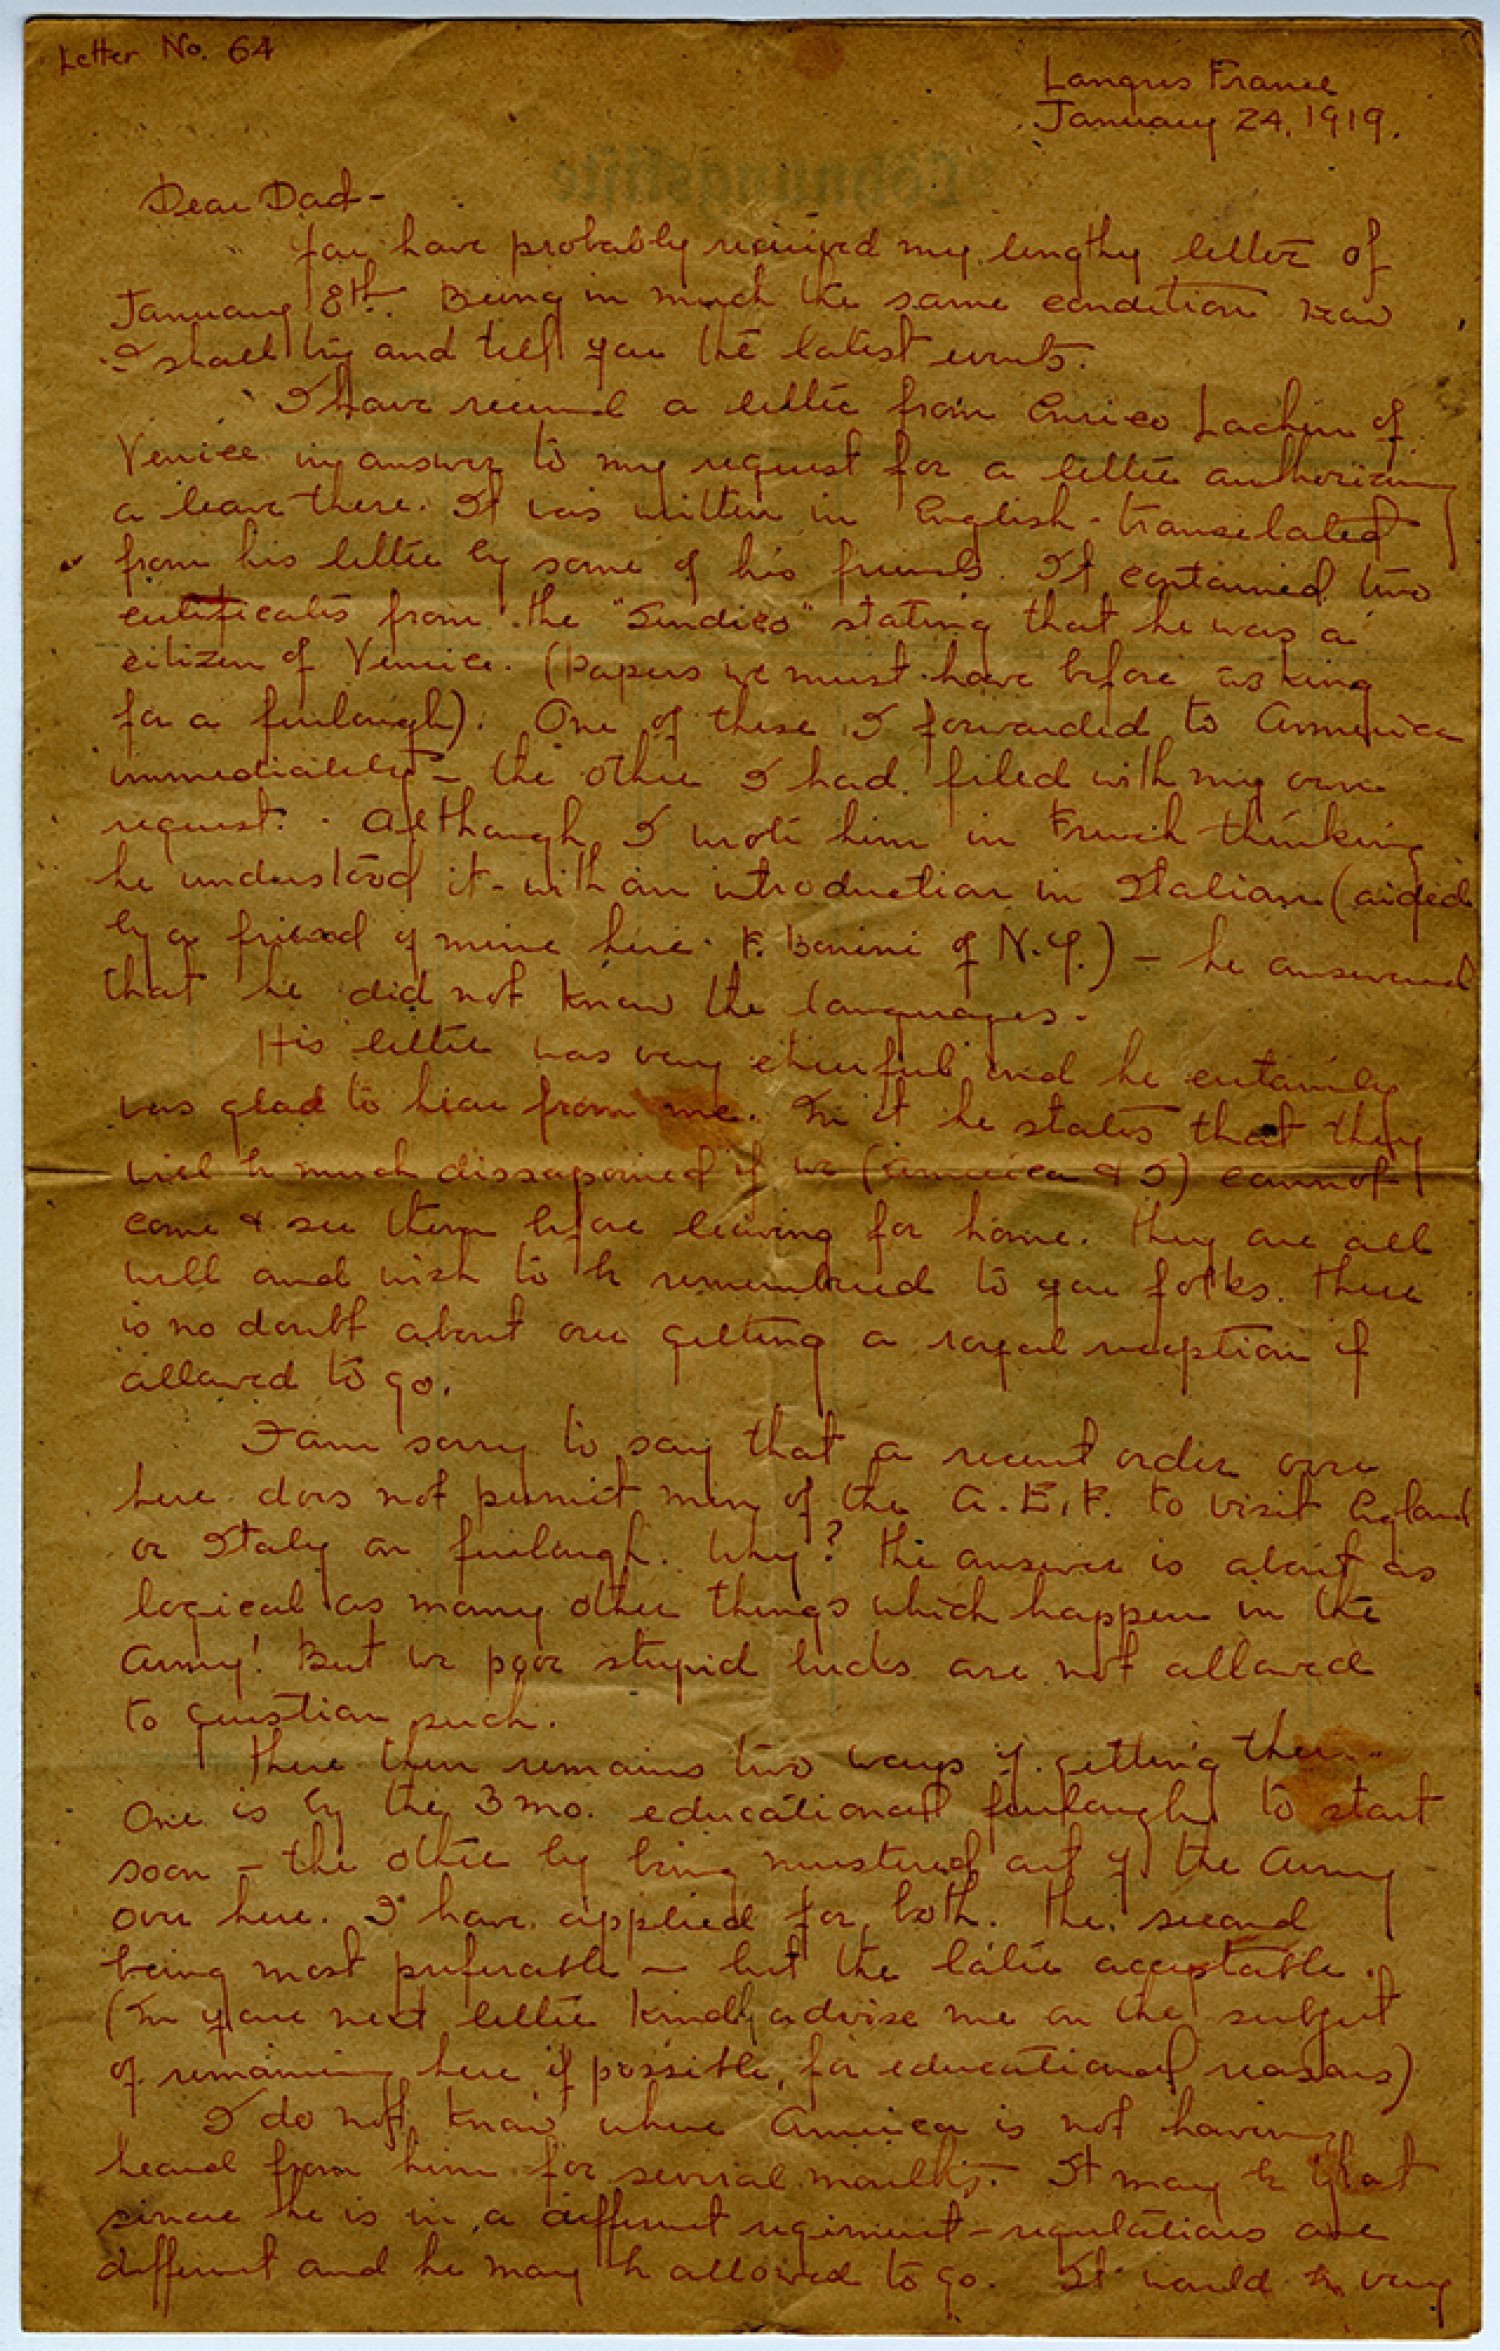 Letter No. 64
Langres France
January 24, 1919.
Löhnungsliste
Dear Dad-
You have probably received my lengthy letter of
January 8th. Being in much the same condition now
I shall try and tell you the latest events.
I have received a letter from Enrico Lachin of
Venice in answer to my request for a letter authorizing
a leave there. It was written in English - translated
from his letter by some of his friends. It contained two
certificates from the "Sindico" stating that he was a
citizen of Venice. (Papers we must have before asking
for a furlough). One of these I forwarded to America
immediately - the other I had filed with my own
request. Although I wrote him in French thinking
he understood it - with an introduction in Italian (aided
by a friend of mine here F. Bonini of N.Y.) - he answered
that he did not know the languages.
His letter was very cheerful and he certainly
was glad to hear from me. In it he states that they
will be much dissapoined if we (America & I) cannot
come & see them before leaving for home. They are all
well and wish to be remembered to you folks. There
is no doubt about our getting a royal reception if
allowed to go.
I am sorry to say that a recent order over
here does not permit men of the A.E.F. to visit England
or Italy on furlough. Why? The answer is about as
logical as many other things which happen in the
Army! But we poor stupid bucks are not allowed
to question such.
There then remains two ways of getting there.
One is by the 3 mo. educational furlough to start
soon - the other by being mustered out of the Army
over here. I have applied for both. The second
being most preferable - but the latter acceptable.
(In your next letter kindly advise me on the subject
of remaining here, if possible, for educational reasons)
I do not know where America is not having
heard from him for several months. It may be that
since he is in a different regiment - regulations are
different and he may be allowed to go. It would be very